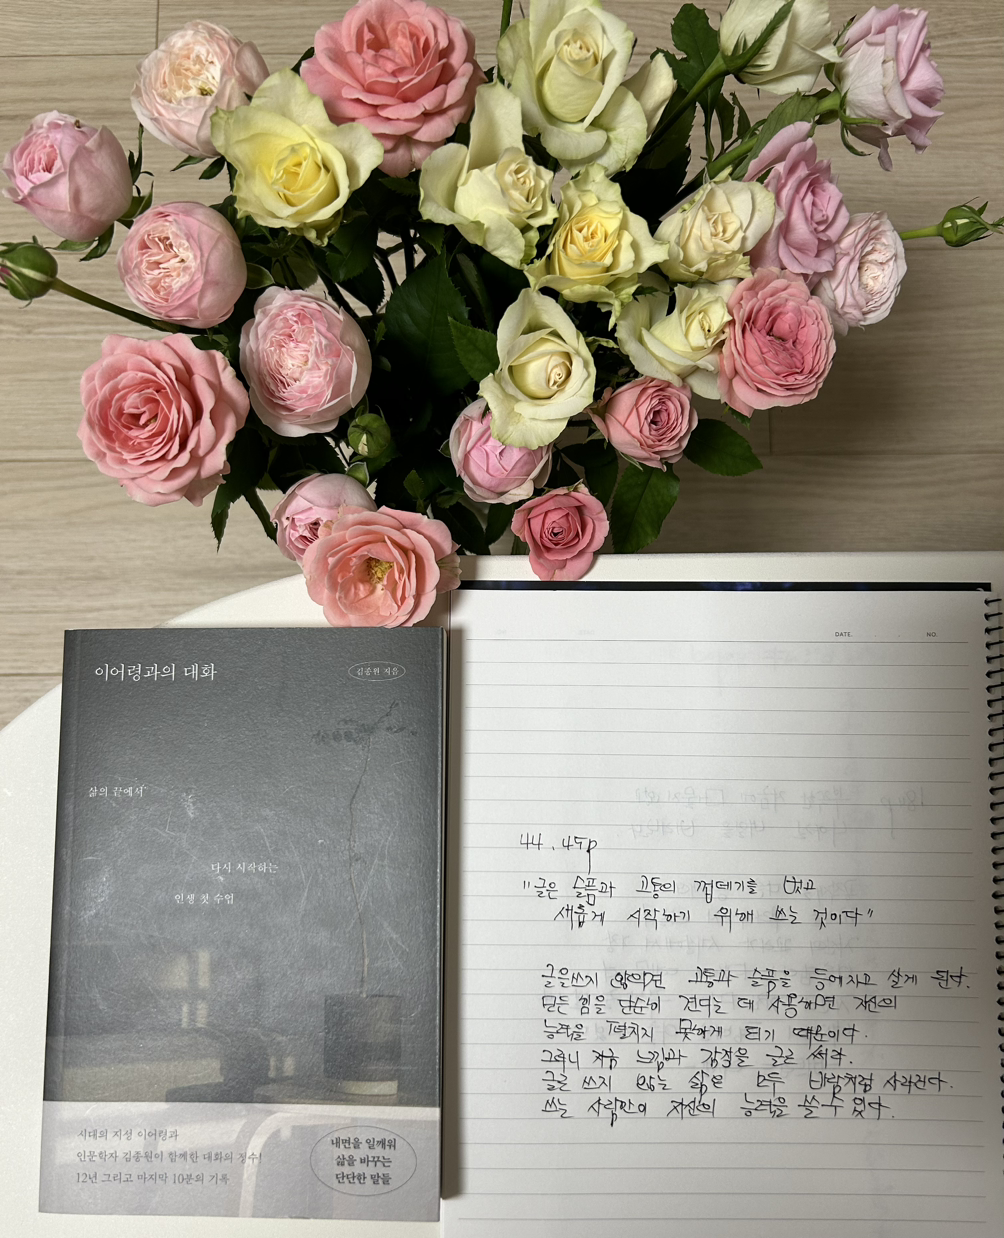 이어령과의 대화
김종원 지음
삶의 끝에서
다시 시작하는
인생 첫 수업
시대의 지성 이어령과
인문학자 김종원이 함께한 대화의 정수!
12년 그리고 마지막 10분의 기록
내면을 일깨워
삶을 바꾸는
단단한 말들
DATE. NO.
44. 45p
"글은 슬픔과 고통의 껍데기를 벗고
새롭게 시작하기 위해 쓰는 것이다"
글을쓰지 않으면 고통과 슬픔을 등에지고 살게 된다.
모든 힘을 단순히 견디는 데 사용하면 자신의
능력을 펼치지 못하게 되기 때문이다.
그러니 지금 느낌과 감정을 글로 써라.
글로 쓰지 않는 삶은 모두 바람처럼 사라진다.
쓰는 사람만이 자신의 능력을 쓸 수 있다.